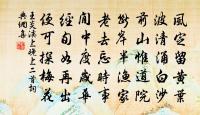 風定留黃葉
波清涌白沙
前山惟道院
數岸半漁家
老去忘時事
閒中度歲華
經旬如再出
便可探梅花
王炎溪上晚上二首詞
典網集